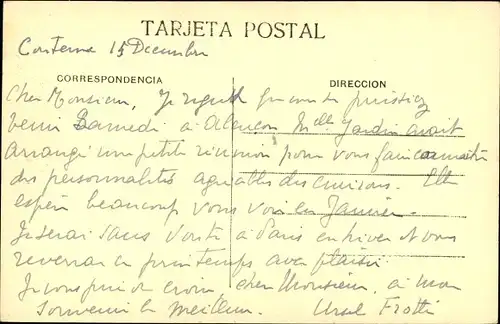 TARJETA POSTAL
15 Decembre
CORRESPONDENCIA
DIRECCION
Cher Monsieur, Je regrette que vous ne puissiez
venir Samedi à Alençon Melle Jardin avait
arrangé une petite réunion pour vous faire connaître
des personnalités agricoles des environs. Elle
espère beaucoup vous voir en Janvier.
Je serai sans doute à Paris en hiver et vous
reverrai au printemps avec plaisir.
Je vous prie de croire, cher Monsieur, à mon
souvenir le meilleur.